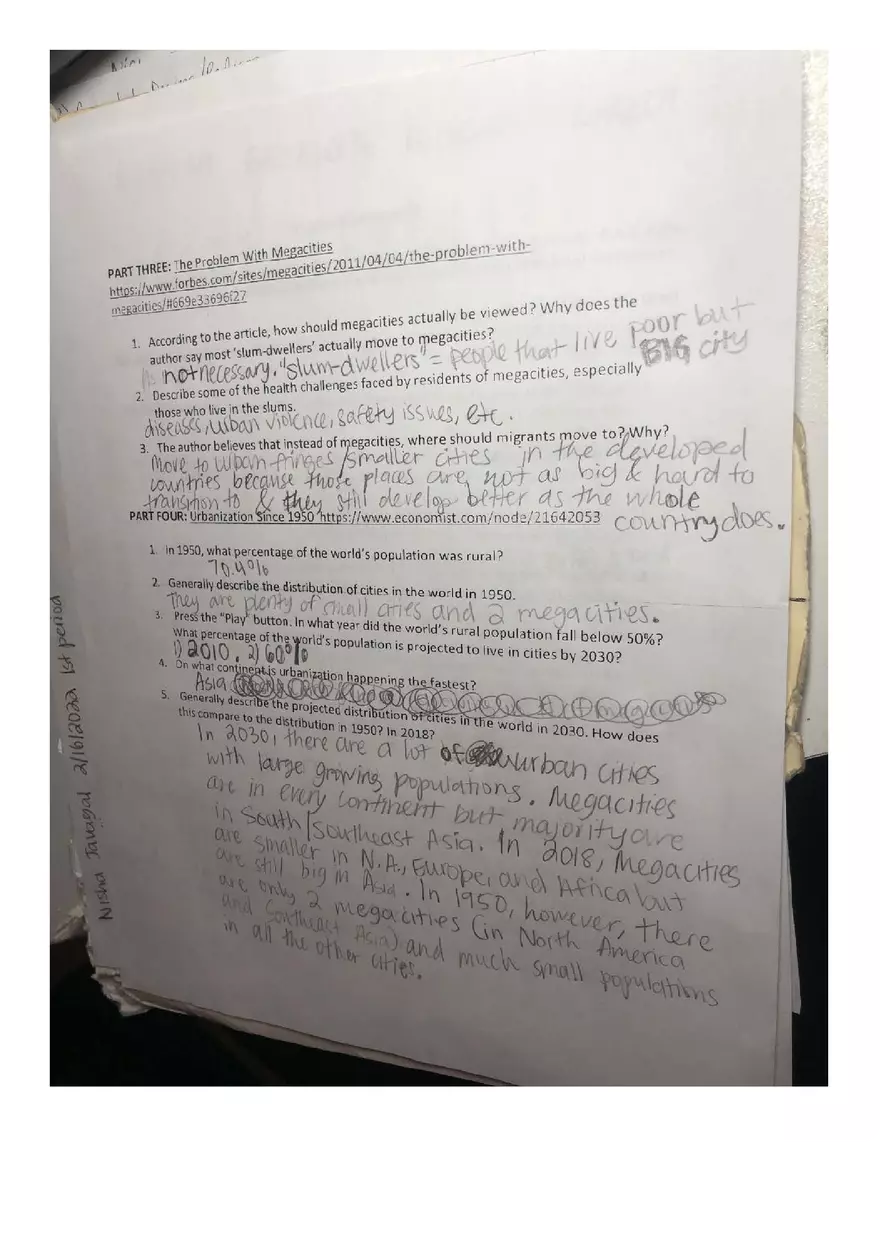 PART THREE: The Problem With Megacities
https://www.forbes.com/sites/megacities/2011/04/04/the-problem-with-
megacities/#669e33696f27
1. According to the article, how should megacities actually be viewed? Why does the
author say most 'slum-dwellers' actually move to megacities?
not necessary. "slum-dwellers" = people that live poor but
BIG city
2. Describe some of the health challenges faced by residents of megacities, especially
those who live in the slums.
diseases, urban violence, safety issues, etc.
3. The author believes that instead of megacities, where should migrants move to? Why?
Move to urban-fringes/smaller cities in the developed
countries because those places are not as big & hard to
transition to & they still develop better as the whole
country does.
PART FOUR: Urbanization Since 1950 https://www.economist.com/node/21642053
1. In 1950, what percentage of the world's population was rural?
70.4%
2. Generally describe the distribution of cities in the world in 1950.
They are plenty of small cities and 2 megacities.
3. Press the "Play" button. In what year did the world's rural population fall below 50%?
What percentage of the world's population is projected to live in cities by 2030?
1) 2010, 2) 60%
4. On what continent is urbanization happening the fastest?
Asia
5. Generally describe the projected distribution of cities in the world in 2030. How does
this compare to the distribution in 1950? In 2018?
In 2030, there are a lot of urban cities
with large growing populations. Megacities
are in every continent but majority are
in South/Southeast Asia. In 2018, Megacities
are smaller in N.A., Europe, and Africa but
are still big in Asia. In 1950, however, there
are only 2 megacities (in North America
and Southeast Asia) and much small populations
in all the other cities.
Nisha Javagal 2/16/2022 1st period